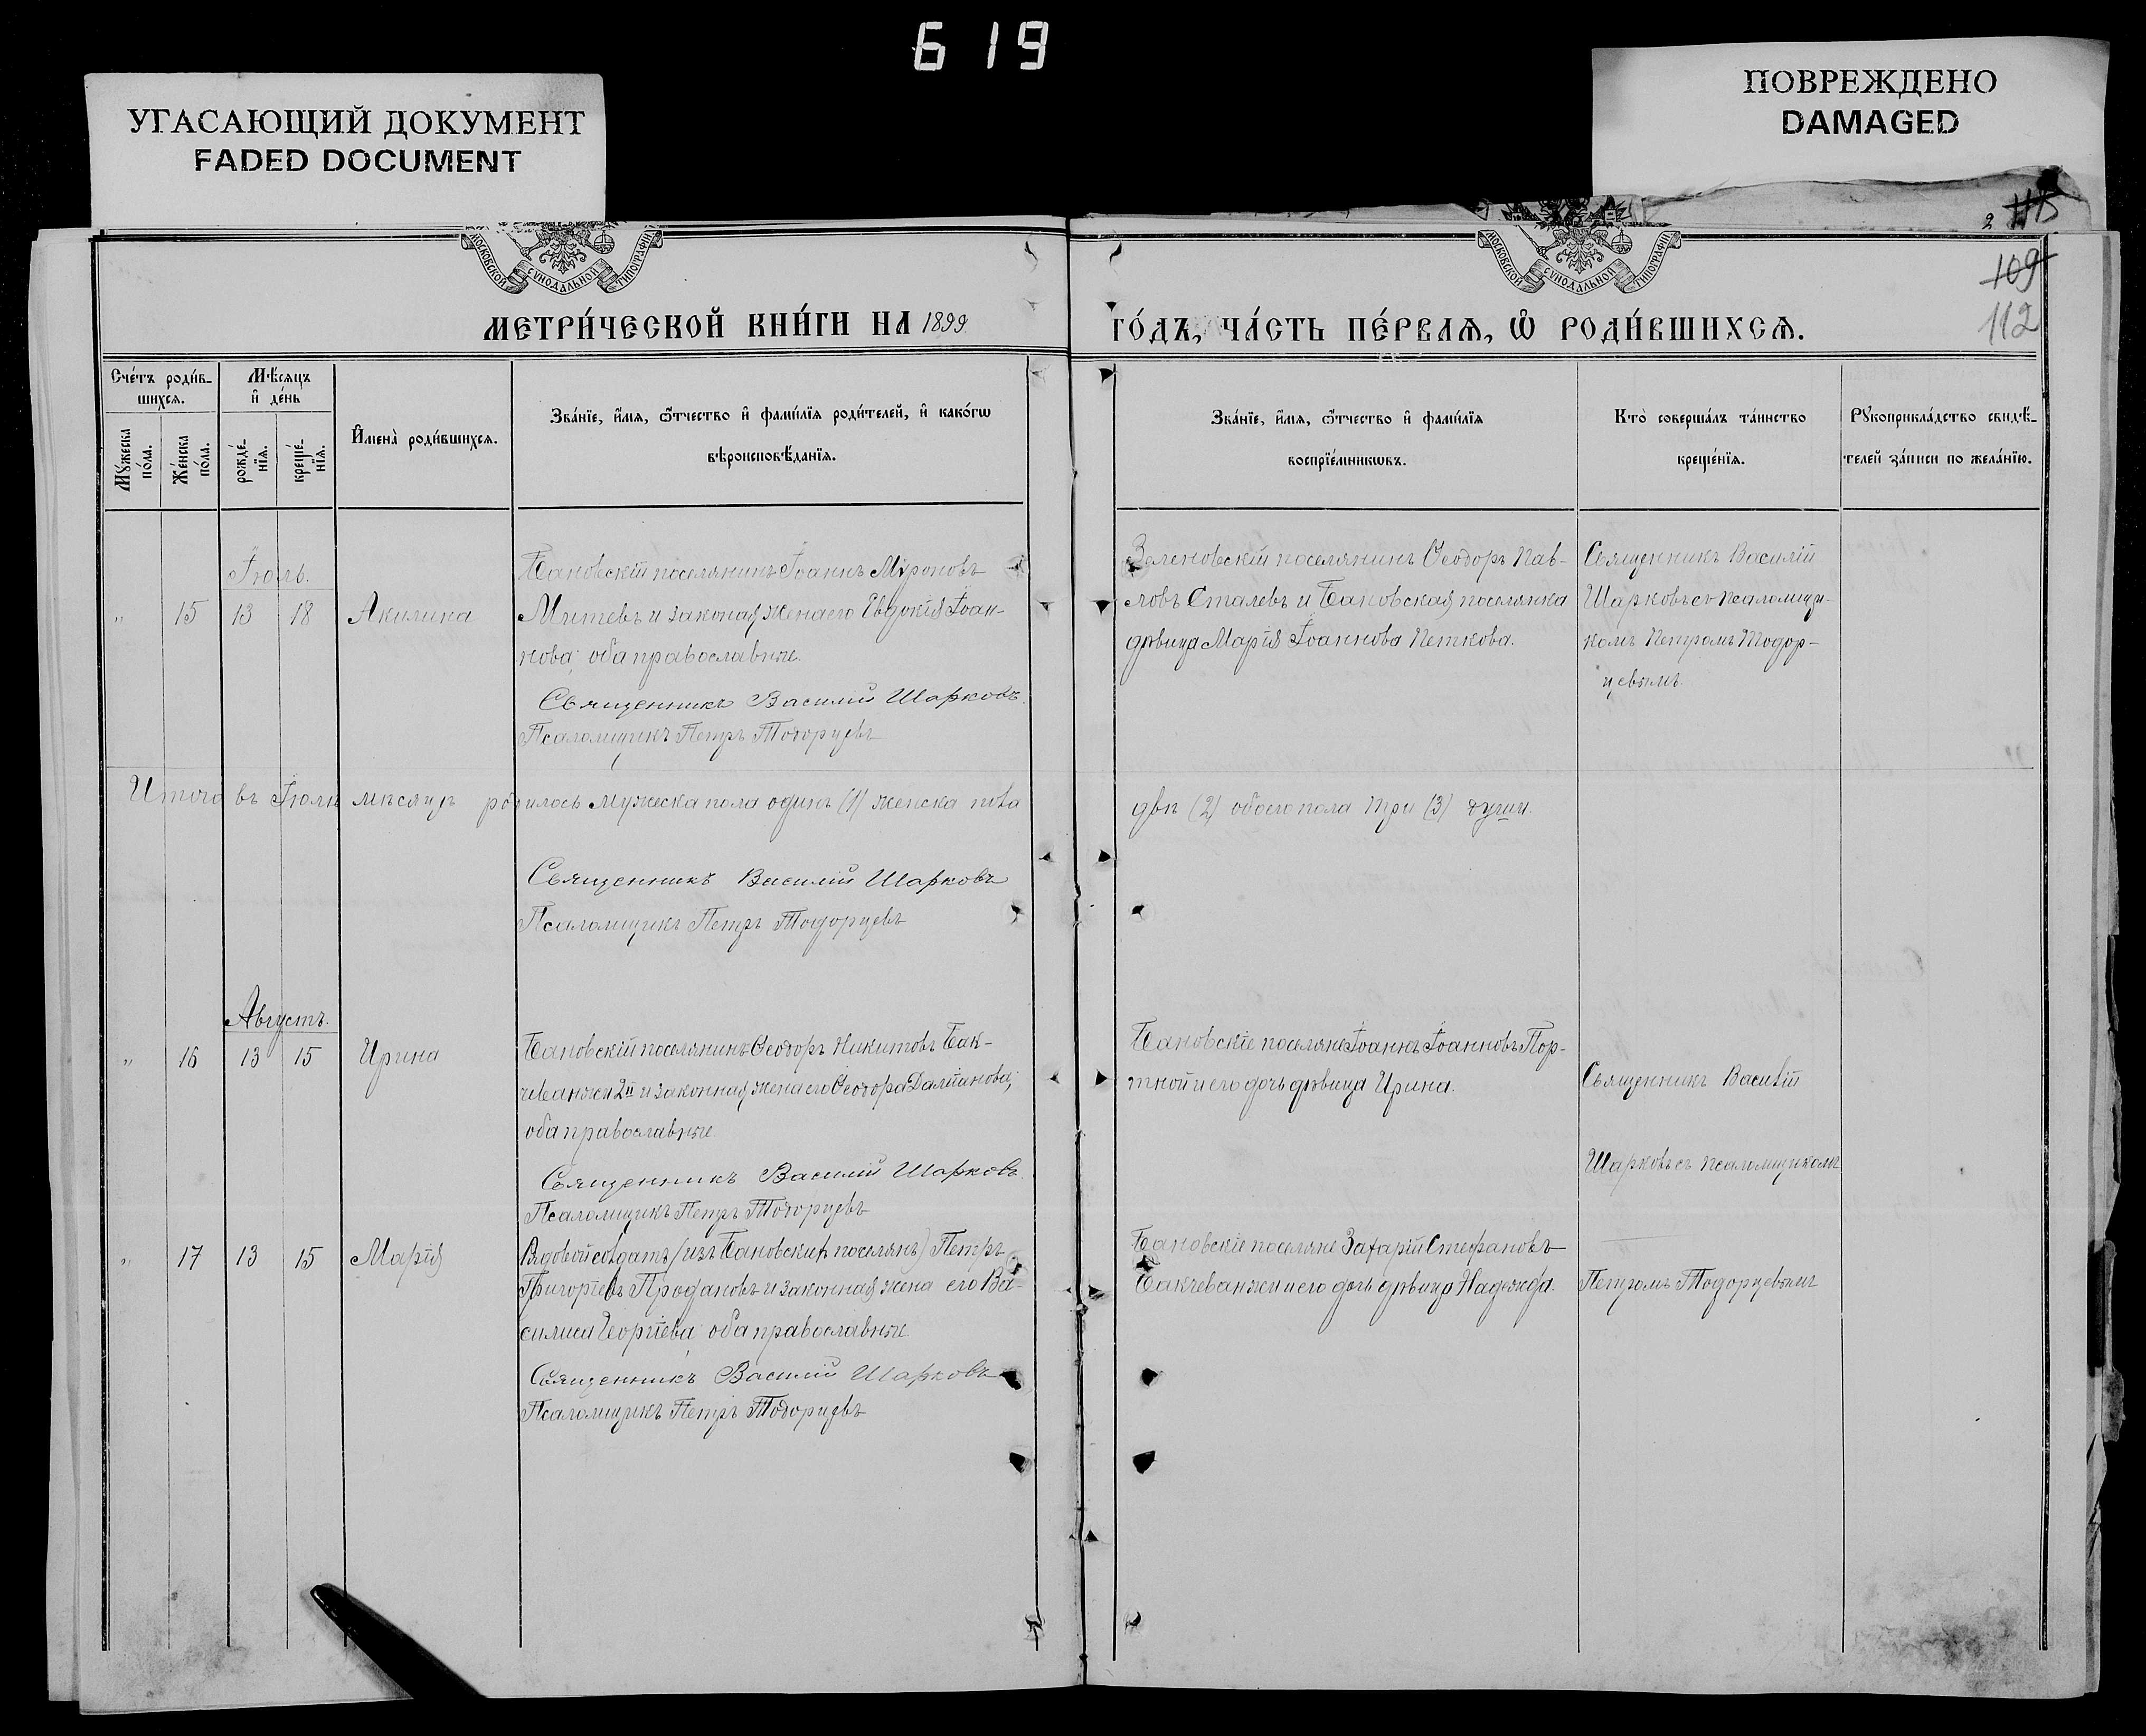 6 19
УГАСАЮЩИЙ ДОКУМЕНТ
FADED DOCUMENT
ПОВРЕЖДЕНО
DAMAGED
115
109
112
МОСКОВСКОЙ СѴНОДАЛЬНОЙ ТИПОГРАФІИ
МОСКОВСКОЙ СѴНОДАЛЬНОЙ ТИПОГРАФІИ
МЕТРИ́ЧЕСКОЙ КНИ́ГИ НА 1899 ГО́ДЪ, ЧА́СТЬ ПЕ́РВАѦ, Ѡ҆ РОДИ́ВШИХСѦ.
Сче́тъ роди́в-
шихсѧ.
Мѣ́сѧцъ
и҆ де́нь
Мꙋ́жеска
по́ла.
Же́нска
по́ла.
рожде́-
нїѧ.
креще́-
нїѧ.
И҆мена̀ роди́вшихсѧ.
Зва́нїе, и҆́мѧ, ѻ҆́тчество и҆ фами́лїѧ роди́телей, и҆ како́гѡ
вѣроисповѣ́данїѧ.
Зва́нїе, и҆́мѧ, ѻ҆́тчество и҆ фами́лїѧ
воспрїе́мникѡвъ.
Кто̀ соверша́лъ та́инство
креще́нїѧ.
Рꙋкоприкла́дство свидѣ́-
телей за́писи по жела́нїю.
Іюль.
„ 15 13 18 Акилина
Бановскій поселянинъ Іоаннъ Мѵроновъ
Митевъ и законая жена его Евдокія Іоан-
нова; оба православные.
Священникъ Василій Шарковъ.
Псаломщикъ Петръ Тодорцевъ
Зеленовскій поселянинъ Ѳеодоръ Пав-
ловъ Сталевъ и Бановская поселянка
дѣвица Марія Іоаннова Петкова.
Священникъ Василій
Шарковъ съ псаломщи-
комъ Петромъ Тодор-
цевымъ.
Итого въ Іюлѣ мѣсяцѣ родилось мужеска пола одинъ (1) женска пола двѣ (2) обоего пола три (3) души.
Священникъ Василій Шарковъ
Псаломщикъ Петръ Тодорцевъ
Августъ.
„ 16 13 15 Ирина
Бановскій поселянинъ Ѳеодоръ Никитовъ Бак-
чеванжи 2й и законная жена его Ѳеодора Даміанова;
оба православные.
Священникъ Василій Шарковъ.
Псаломщикъ Петръ Тодорцевъ
Бановскіе поселяне Іоаннъ Іоанновъ Пор-
тной и его дочь дѣвица Ирина.
Священникъ Василій
Шарковъ съ псаломщикомъ
„ 17 13 15 Марія
Рядовой солдатъ (изъ Бановскихъ поселянъ) Петръ
Григоріевъ Продановъ и законная жена его Ва-
силиса Георгіева; оба православные.
Священникъ Василій Шарковъ
Псаломщикъ Петръ Тодорцевъ
Бановскіе поселяне Захарій Стефановъ
Бакчеванжи и его дочь дѣвица Надежда.
Петромъ Тодорцевымъ